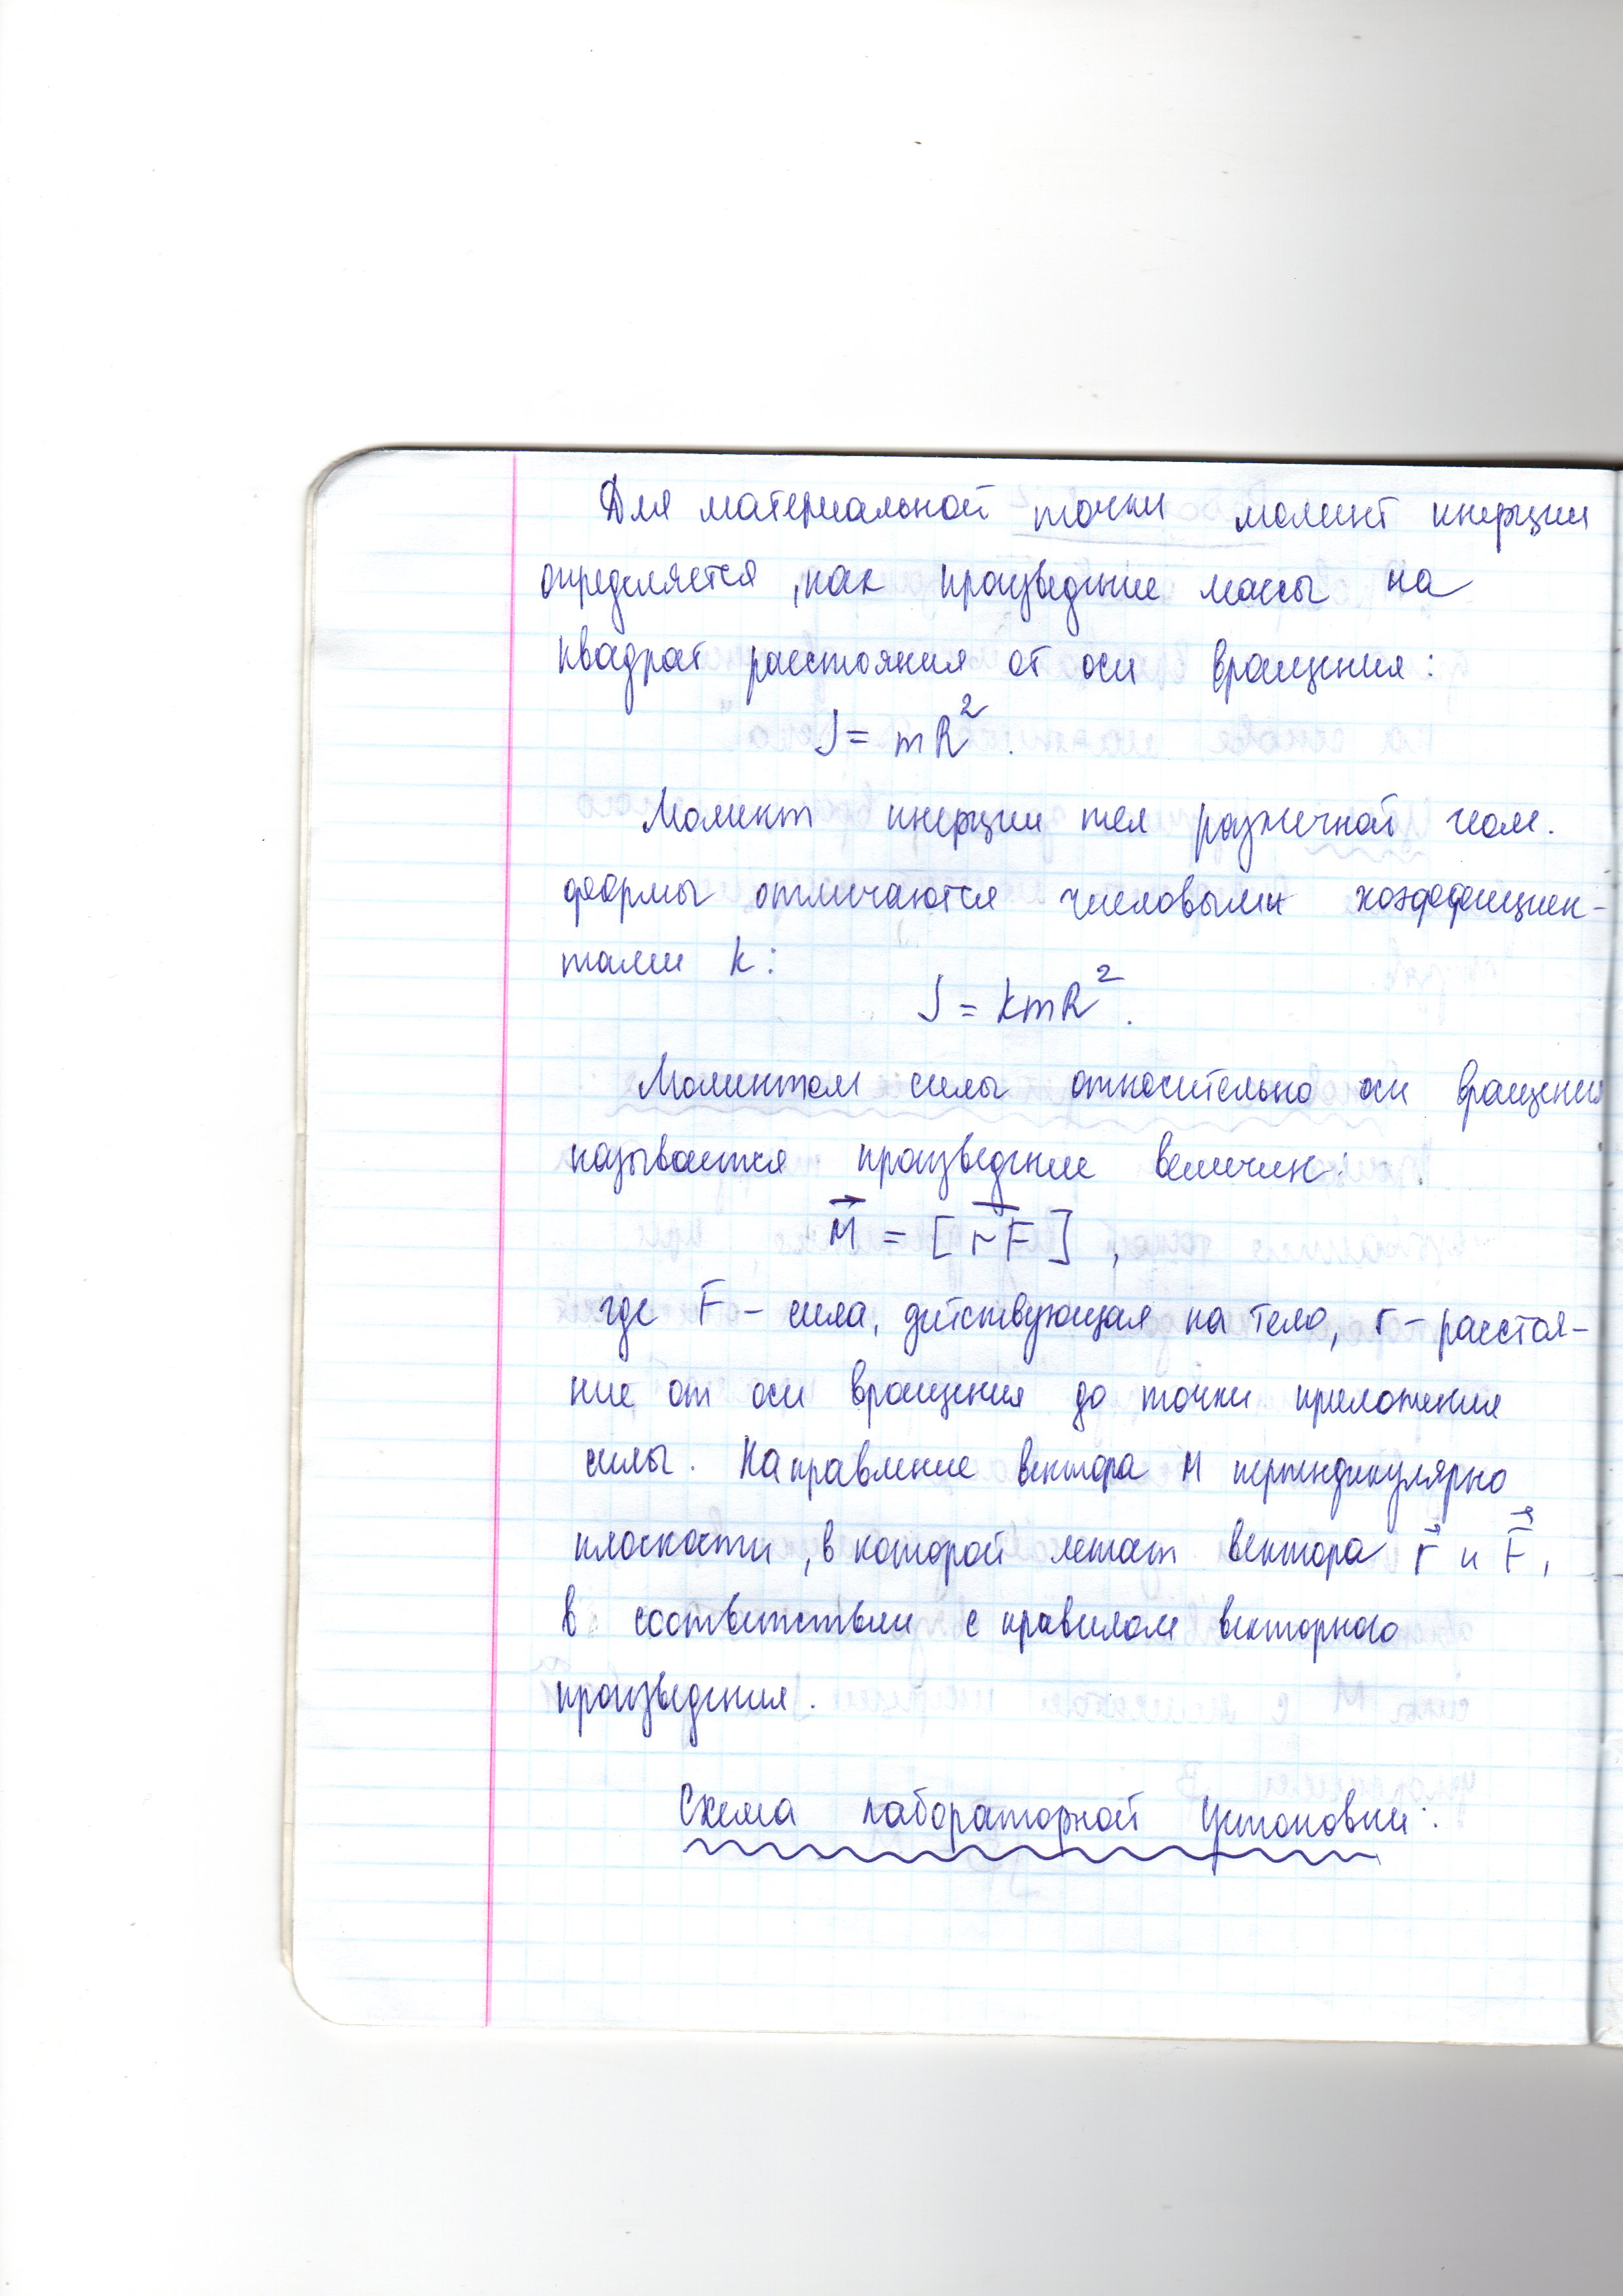 Для материальной точки момент инерции
определяется, как произведение массы на
квадрат расстояния от оси вращения:
J = mR².
Момент инерции тел различной геом.
формы отличаются числовыми коэффициен-
тами k:
J = kmR².
Моментом силы относительно оси вращения
называется произведение величин:
M⃗ = [r⃗F⃗],
где F – сила, действующая на тело, r – расстоя-
ние от оси вращения до точки приложения
силы. Направление вектора М перпендикулярно
плоскости, в которой лежат вектора r⃗ и F⃗,
в соответствии с правилом векторного
произведения.
Схема лабораторной установки: